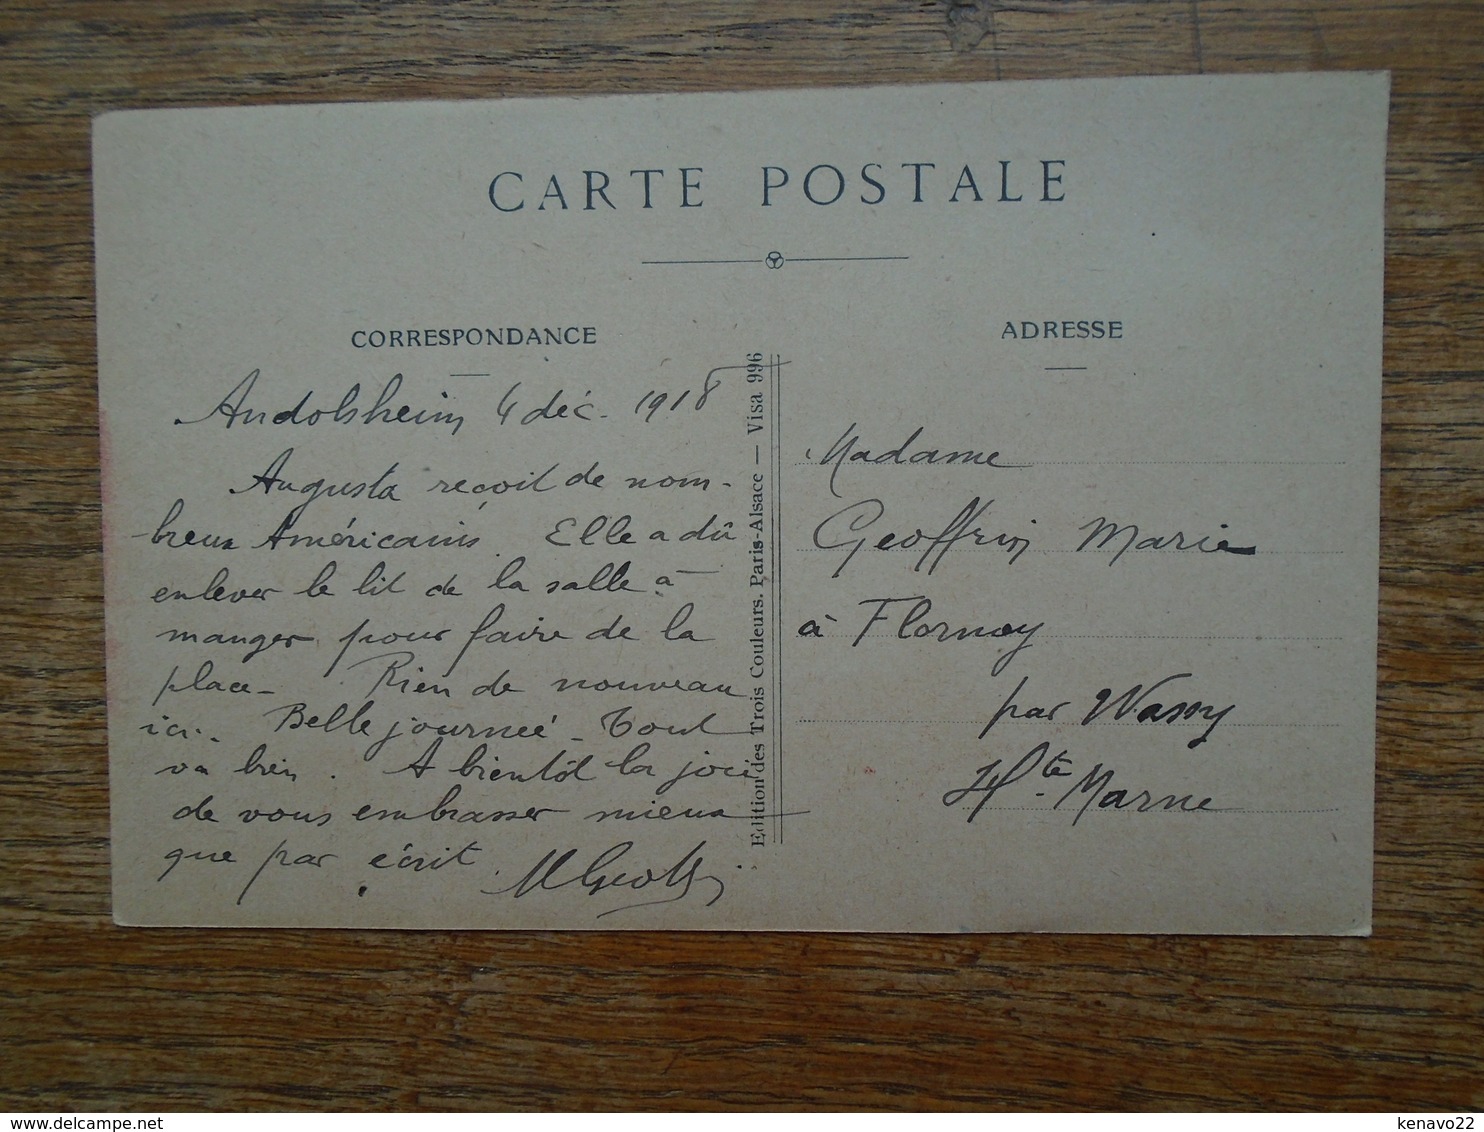 CARTE POSTALE
CORRESPONDANCE
Andolsheim 4 déc. 1918
Augusta reçoit de nom-
breux Américains. Elle a dû
enlever le lit de la salle à
manger pour faire de la
place - Rien de nouveau
ici. Belle journée - Tout
va bien. A bientôt la joie
de vous embrasser mieux
que par écrit.
Edition des Trois Couleurs. Paris-Alsace — Visa 996
ADRESSE
Madame
Geoffrin Marie
à Flornoy
par Wassy
Hte Marne
kenavo22